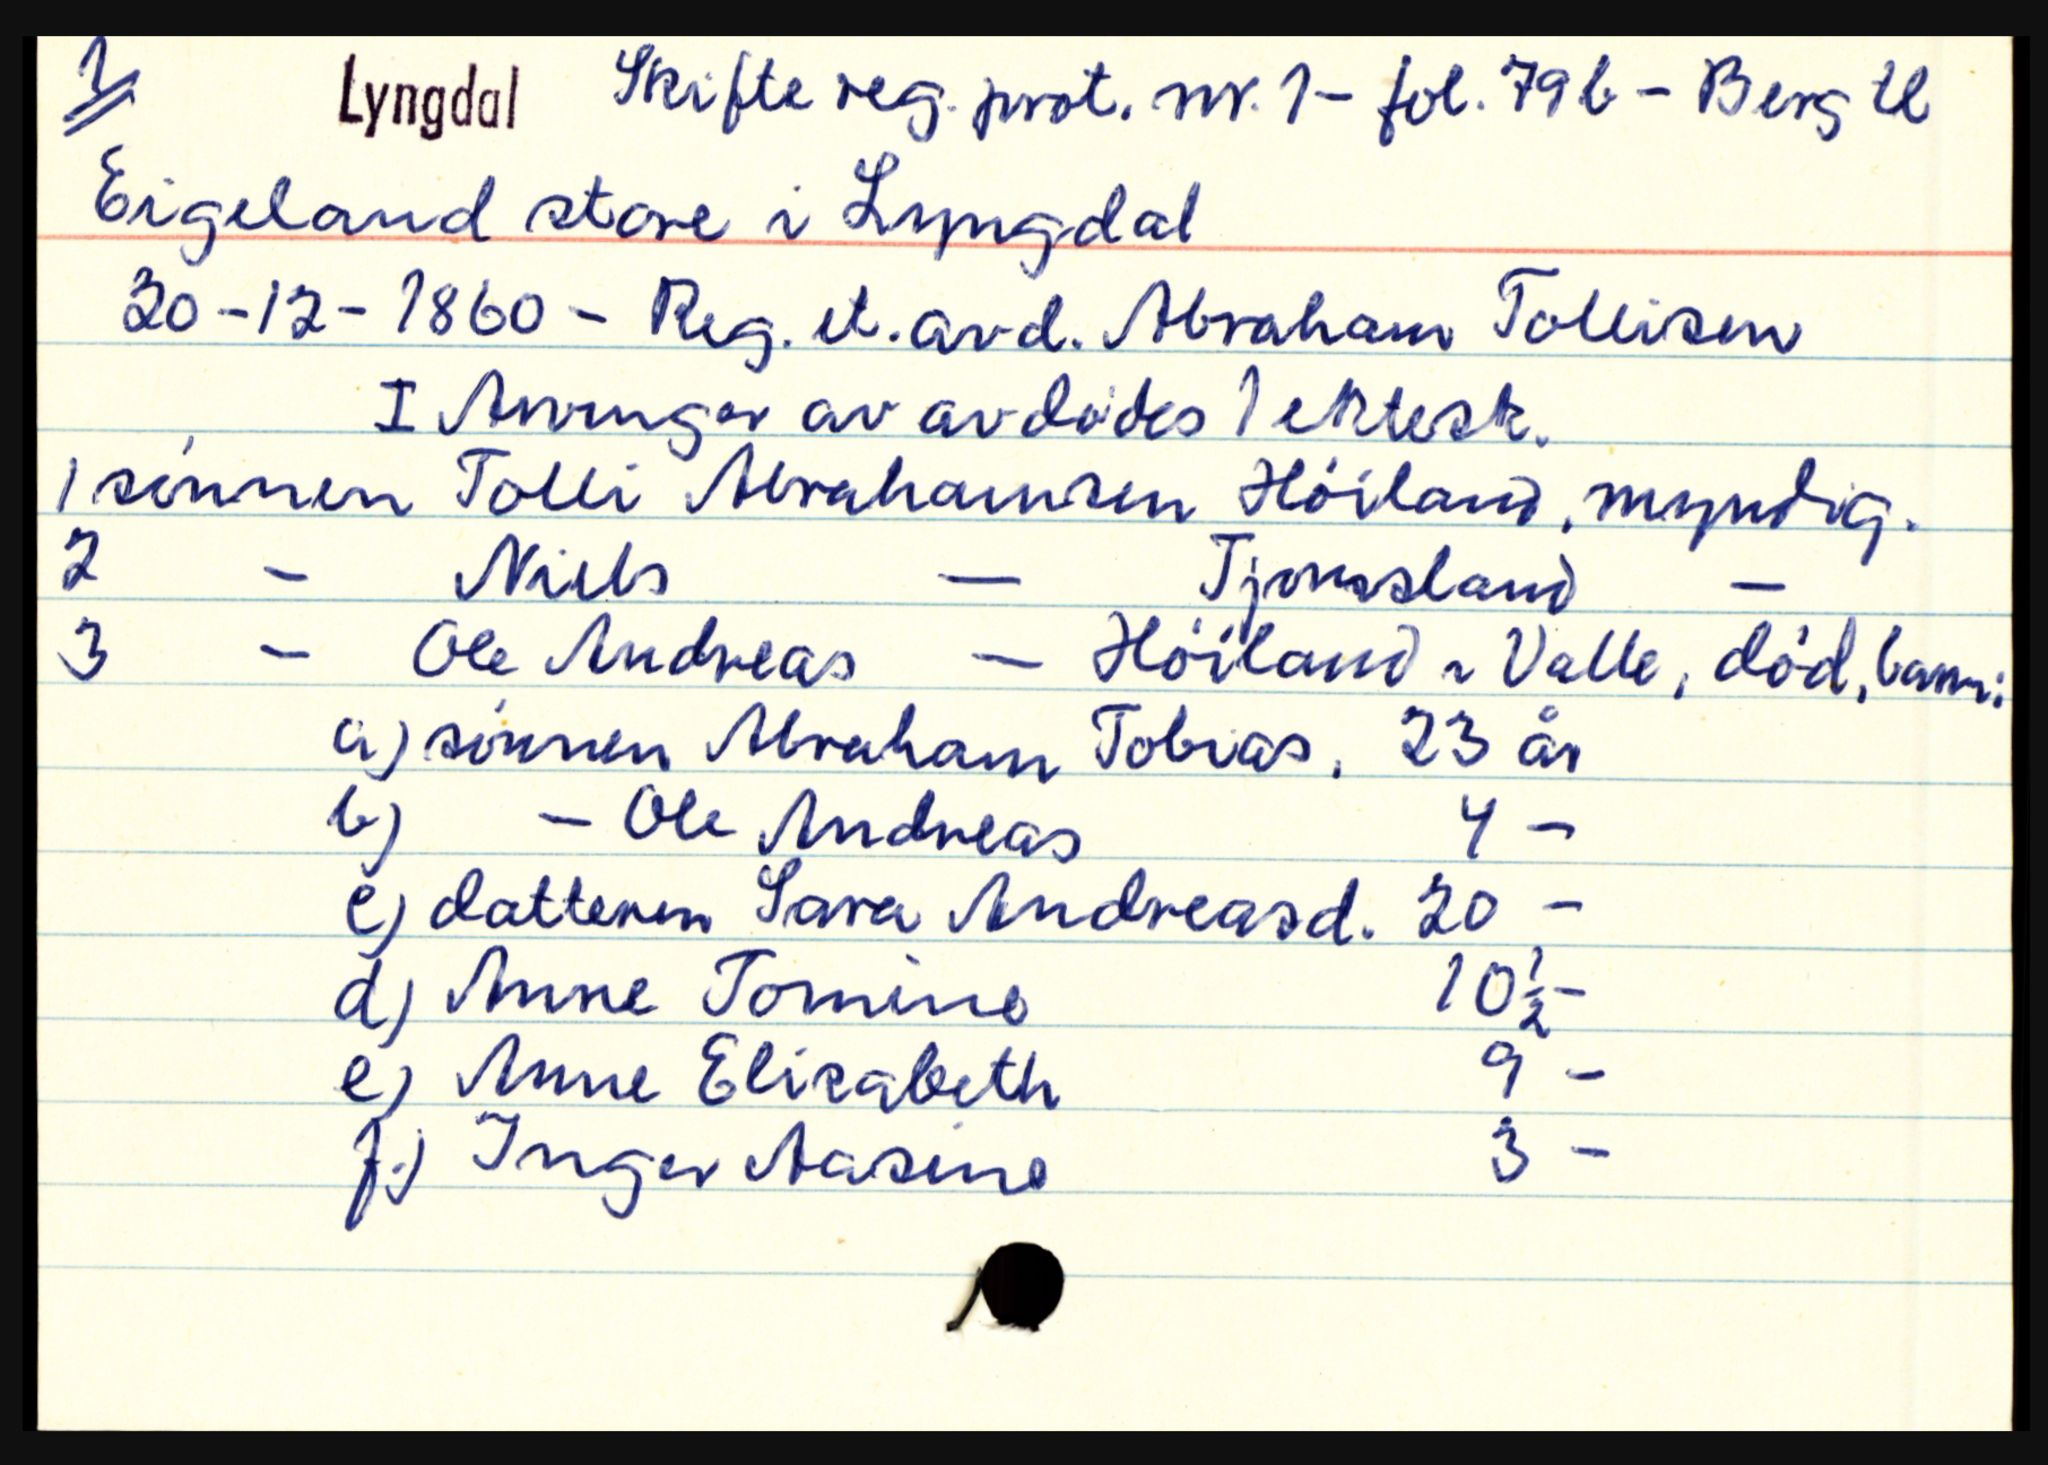 1/ Lyngdal Skifte reg. prot. nr. 1 - fol. 79b - Berg tl
Eigeland store i Lyngdal
20-12-1860 - Reg. et. avd. Abraham Tollisen
I Arvinger av avdødes 1 ektesk.
1 sønnen Tolli Abrahamsen Høiland, myndig.
2 - Niels - Tjomsland -
3 - Ole Andreas - Høiland i Valle, død, barn:
a) sønnen Abraham Tobias, 23 år
b) - Ole Andreas 4 -
c) datteren Sara Andreasd. 20 -
d) Anne Tomine 10 1/2 -
e) Anne Elisabeth 9 -
f.) Inger Aasine 3 -